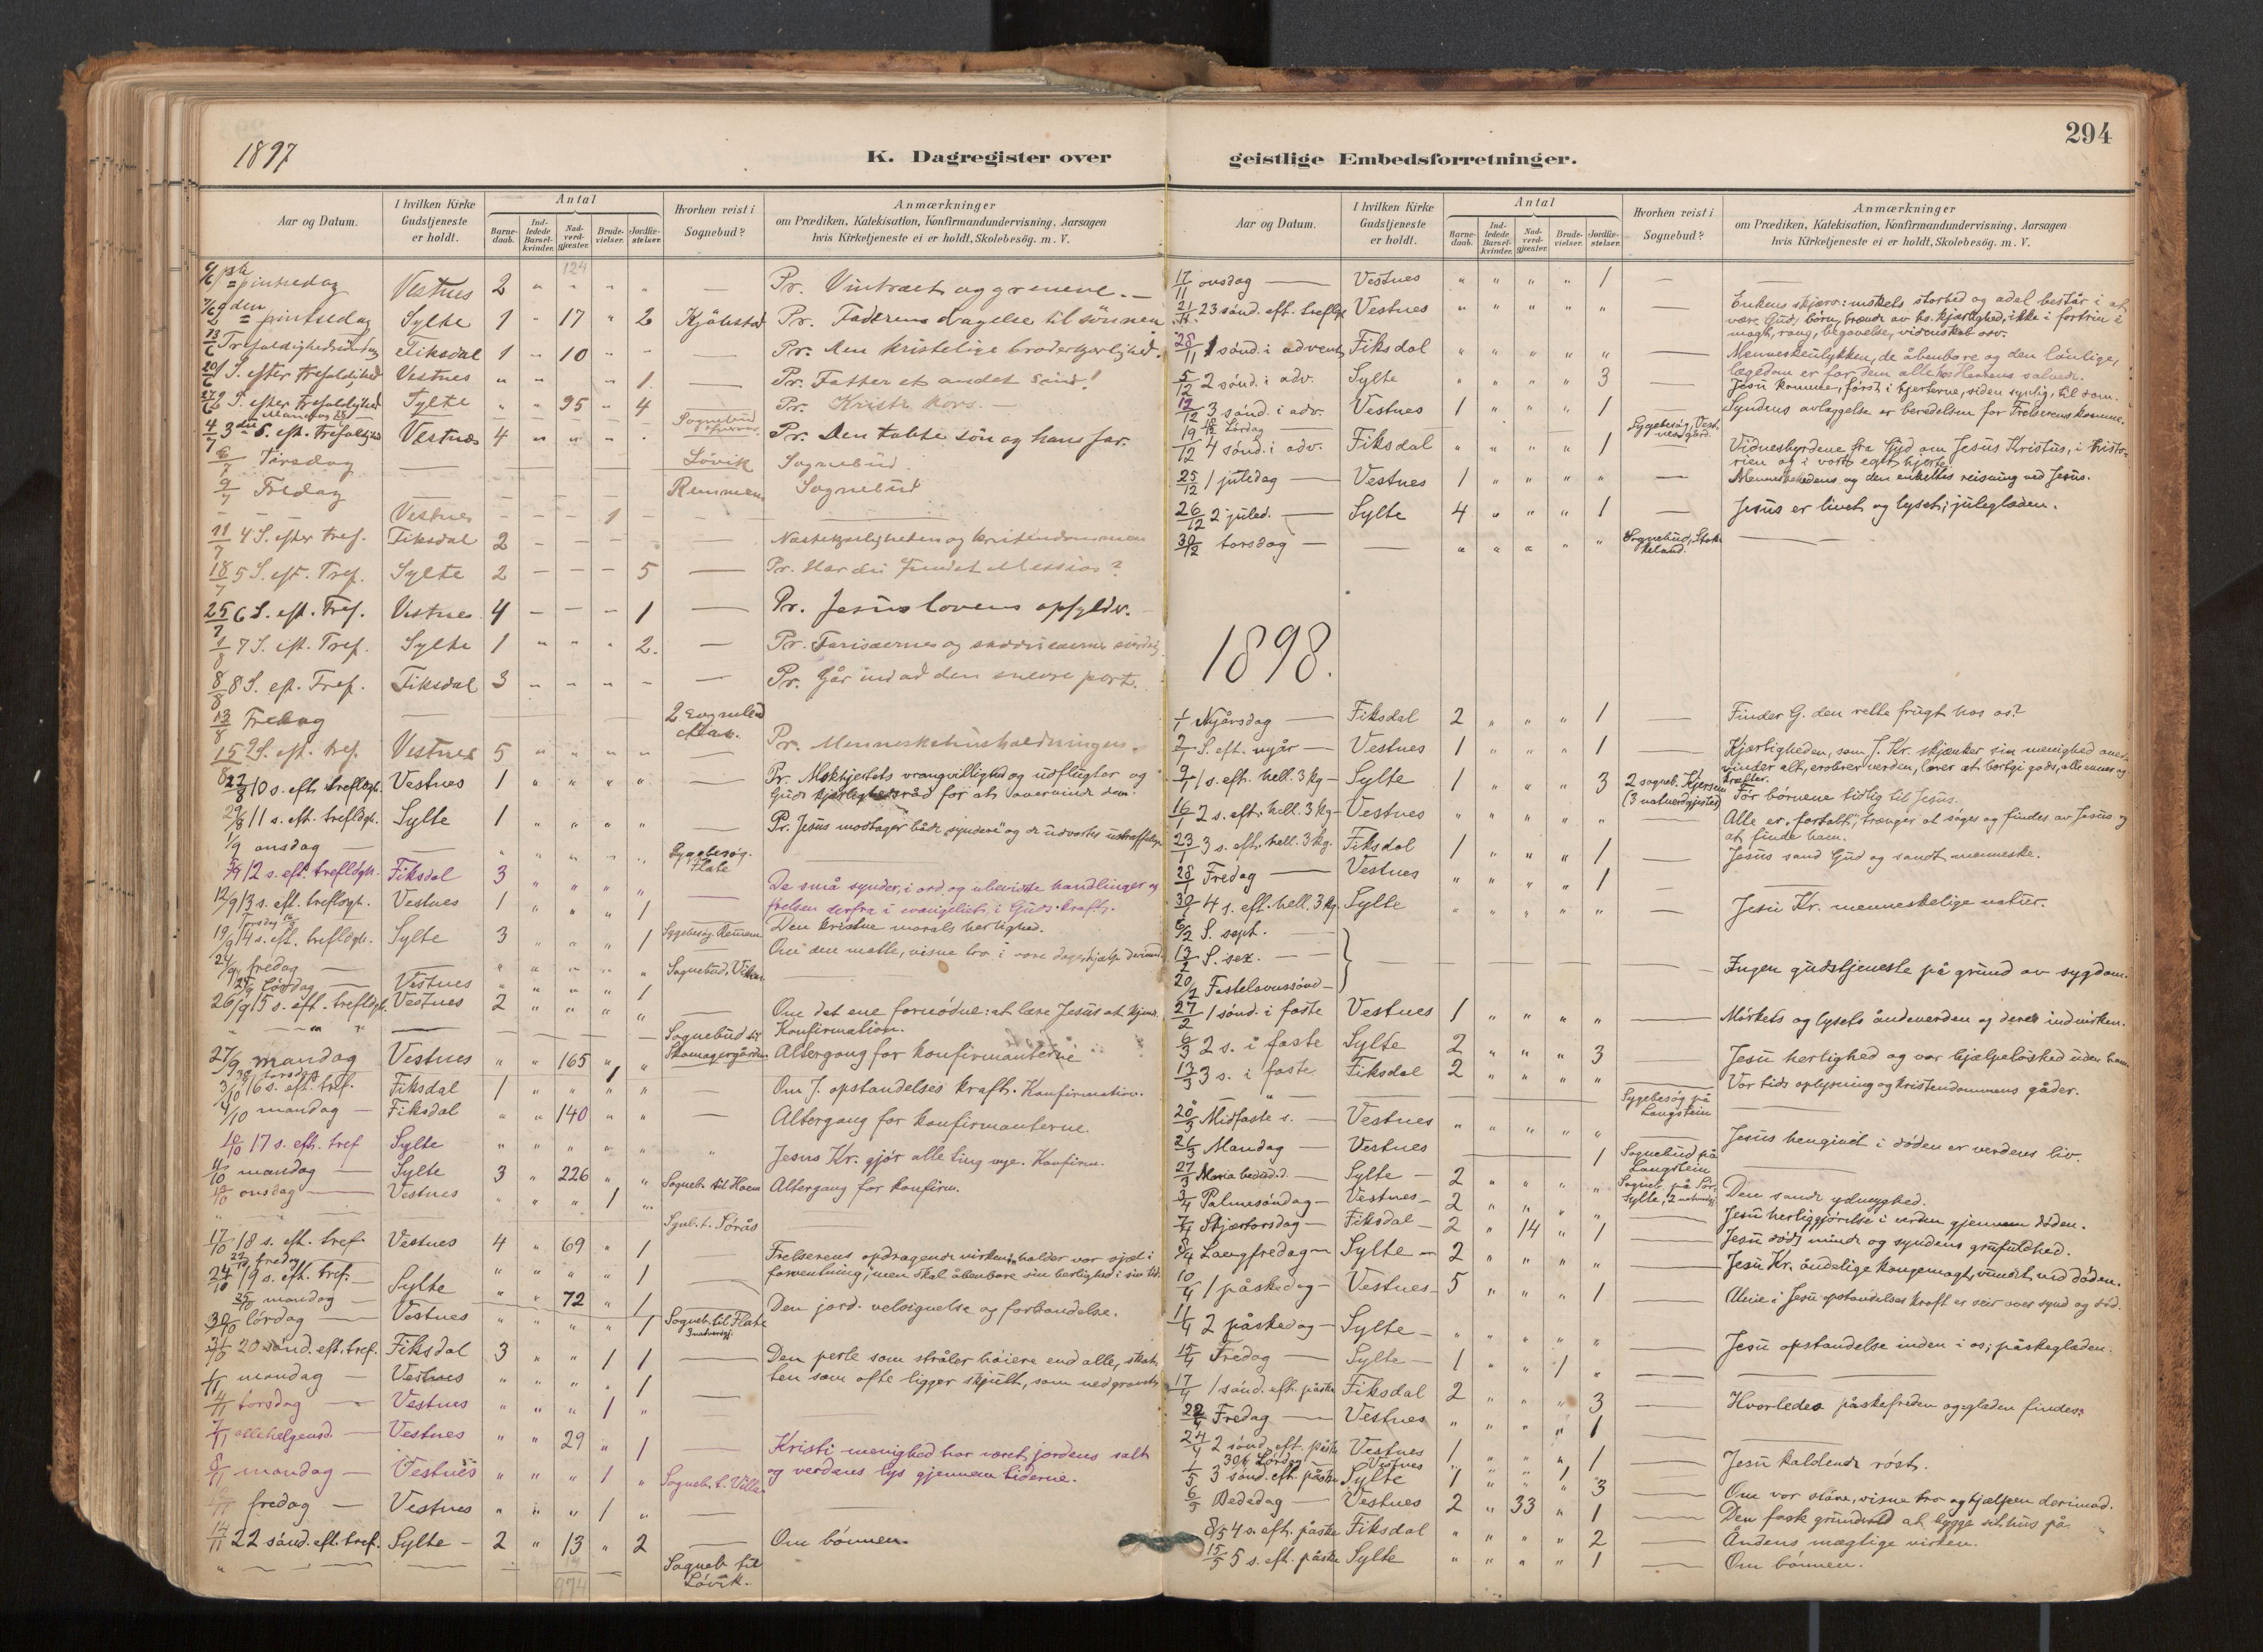 294
1897
K. Dagregister over geistlige Embedsforretninger.
Aar og Datum. I hvilken Kirke Gudstjeneste er holdt. Antal Barne-daab. Ind-ledede Barsel-kvinder. Nad-verd-gjester. Brude-vielser. Jordfæ-stelser. Hvorhen reist i Sognebud? Anmærkninger om Prædiken, Katekisation, Konfirmandundervisning, Aarsagen hvis Kirketjeneste ei er holdt, Skolebesøg. m. V.
124
6/6 pintsedag Vestnes 2 " " " " — Pr. Vintræet og grenene. —
7/6 2den pintsedag Sylte 1 " 17 " 2 Pr. Faderens dragelse til sönnen
13/6 Trefoldighedssöndag Fiksdal 1 " 10 " " — Pr. Den kristelige broderkjerlighed.
20/6 1 S. efter trefoldighed Vestnes " " " 1. — Pr. Fatter et andet sind!
27/6 2 S. efter trefoldighed Sylte " " 95 " 4 Pr. Kristi kors. —
Mandag 28 — Sognebud
4/7 3die S. eft. trefoldighed Vestnes 4 " " " " Pr. Den tabte sön og hans far.
6/7 Tirsdag — Lövik Sognebud.
9/7 Fredag — Remmem Sognebud
— Vestnes — — — 1 — —
11/7 4 S. efter tref. Fiksdal 2 — — — — Næstekjærligheden og kristendommen
18/7 5 S. eft. Tref. Sylte 2 — — — 5 — Pr. Har du fundet Messias?
25/7 6 S. eft. Tref. Vestnes 4 — — — 1 — Pr. Jesus lovens opfylder.
1/8 7 S. eft. Tref. Sylte 1 " " " 2. — Pr. Farisæernes og sadducæernes surdeig
8/8 8 S. eft. Tref. Fiksdal 3 — — — — — Pr. Går ind ad den snevre port.
13/8 Fredag — 2 Sognebud
15/8 9 S. eft. tref. Vestnes 5 " " " " — Pr. Menneskehusholdningen.
22/8 10 s. eft. trefldgh. Vestnes 1 " " " " — Pr. Mskhjertets vrangvillighed og udflugter og
Guds kjærlighedsråd for at overvinde dem.
29/8 11 s. eft. trefldgh. Sylte 1 " " " " — Pr. Jesus modtager både "syndere" og de udvortes ustraffelige
1/9 onsdag — — " " " " " Sygebesøg. Flate —
5/9 12 s. eft. trefldgh. Fiksdal 3 " " " " De små synder, i ord og ubevidste handlinger og
12/9 13 s. eft. trefldgh. Vestnes 1 " " " 1 frelsen derfra i evangeliets i Guds kraft.
Torsdag 16/9 Sygebesøg Remmem Den kristne morals herlighed.
19/9 14 s. eft. trefldgh. Sylte 3 " " " 1 — Om den matte, visne tro i vore dage, hjælp derimod.
24/9 fredag — " " " " " Sognebud. Viken
25/9 Lördag — Vestnes " " " " 1
26/9 15 s. eft. trefldgh. Vestnes 2 " " " " — Om det ene fornødne: at lære Jesus at kjende.
" — " — Sognebud til Skomagergården Konfirmation.
27/9 mandag Vestnes " " 165 " " Altergang for konfirmanterne
30/9 torsdag 1
3/10 16 s. eft. tref. Fiksdal 1 " " " " — Om J. opstandelses kraft. Konfirmation.
4/10 mandag — Fiksdal " " 140 " " — Altergang for konfirmanterne.
10/10 17 s. eft. tref Sylte " " " " " " Jesus Kr. gjör alle ting nye. Konfirm.
11/10 mandag — Sylte 3 " 226 " " Sogneb. til Hoem Altergang for konfirm.
13/10 onsdag — Vestnes " " " 1 "
" — — — Sgnb. t. Sörås —
17/10 18 s. eft. tref. Vestnes 4 " 69 " 1 — Frelserens opdragende virken "holder vor sjæl i
22/10 fredag " " " " 1 forventning", men skal åbenbare sin herlighed i sin tid.
24/10 19 s. eft. tref. — Sylte " " 72 " 1 — Den jord. velsignelse og forbandelse.
25/10 mandag —
30/10 lördag — Vestnes " " " " 1 Sogneb. til Flate 3 natverdgj.
31/10 20 sönd. eft. tref. Fiksdal 3 " " 1 1 — Den perle som stråler höiere end alle, skat-
1/11 mandag — Vestnes " " " " 1 — ten som ofte ligger skjult, som nedgravet
4/11 torsdag — Vestnes " " " 1 " —
7/11 allehelgensd. — Vestnes " " 29 " 1 — Kristi menighed har været jordens salt
8/11 mandag — Vestnes " " " 1 " Sogneb. t. Villa og verdens lys gjennem tiderne.
fredag — Vestnes " " " 1 " —
14/11 22 sönd. eft. tref. Sylte — 2 " 13 " 2 — Om bönnen.
" — — — Sogneb til Lövik.
974
Aar og Datum. I hvilken Kirke Gudstjeneste er holdt. Antal Barne-daab. Ind-ledede Barsel-kvinder. Nad-verd-gjester. Brude-vielser. Jordfæ-stelser. Hvorhen reist i Sognebud? Anmærkninger om Prædiken, Katekisation, Konfirmandundervisning, Aarsagen hvis Kirketjeneste ei er holdt, Skolebesøg. m. V.
17/11 onsdag — Vestnes " " " " 1 — —
21/11 23 sönd. eft. trefldgh Vestnes " " " " " — Enkens skjærv: mskets storhed og adel består i at
være Gud's börn, brænde av hs. kjærlighed, ikke i fortrin i
magt, rang, begavelse, videnskab osv.
28/11 1 sönd. i advent Fiksdal " " " " " — Menneskeulykken, de åbenbare og den lönlige,
lægedom er for dem alle hos Herrens salvede.
5/12 2 sönd. i adv. Sylte " " " " 3 — Jesu komme, först i hjerterne, siden synlig, til dom.
12/12 3 sönd. i adv. Vestnes 1 " " " 1 — Syndens avlæggelse er beredelsen for Frelserens komme.
18/12 Lördag — Sygebesög, Vestnesgård.
19/12 4 sönd. i adv. Fiksdal " " " " 1 — Vidnesbyrdene fra Gud om Jesus Kristus, i histo-
rien og i vort eget hjerte.
25/12 1 juledag — Vestnes 1 " " " " — Menneskehedens og den enkeltes reisning ved Jesus.
26/12 2 juled. — Sylte 4 " " " 1 — Jesus er livet og lyset; juleglæden.
30/12 torsdag — — " " " " " Sognebud, Stokkeland. —
1898.
1/1 Nyårsdag — Fiksdal 2 " " " 1 — Finder G. den rette frugt hos os?
2/1 S. eft. nyår — Vestnes 1 " " " 1 — Kjærligheden, som J. Kr. skjænker sin menighed over-
vinder alt, erobrer verden, lærer at bortgi gods, alle evner og
kræfter.
9/1 1 s. eft. hell. 3 kg — Sylte 1 " " " 3 2 sogneb. Kjersem (3 natverdgjester) Før börnene tidlig til Jesus.
16/1 2 s. eft. hell. 3 kg — Vestnes " " " " " — Alle er "fortabt", trænger at söges og findes av Jesus og
at finde ham.
23/1 3 s. eft. hell. 3 kg. Fiksdal 1 " " " 1 — Jesus sand Gud og sandt menneske.
28/1 Fredag — Vestnes " " " " 1 — —
30/1 4 s. eft. hell. 3 kg. Sylte " " " " " — Jesu Kr. menneskelige natur.
6/2 S. sept. —
13/2 S. sex. — — Ingen gudstjeneste på grund av sygdom.
20/2 Fastelavnssönd —
27/2 1 sönd. i faste Vestnes 1 " " " " — Mörkets og lysets åndeverden og deres indvirken.
6/3 2 s. i faste Sylte 2 " " " 3 — Jesu herlighed og vor hjælpelöshed uden ham
13/3 3 s. i faste Fiksdal 2 " " " " — Vor tids oplysning og kristendommens gåder.
— " — Sygebesög på Langstein —
20/3 Midfaste s. — Vestnes " " " " " — Jesus hengivet i döden er verdens liv.
21/3 Mandag — Vestnes 1 Sognebud på Langstein —
27/3 Maria bebud. d. — Sylte — 2 " " " " Sogneb. på Sör-Sylte, 2 natverdgj. Den sande ydmyghed.
3/4 Palmesöndag — Vestnes — 2 " " " " — Jesu herliggjörelse i verden gjennem döden.
7/4 Skjærtorsdag — Fiksdal — 2 " 14 " 1 — Jesu döds minde og syndens grufuldhed.
8/4 Langfredag — Sylte — 2 " " " " — Jesu Kr. åndelige kongemagt, vundet ved döden.
10/4 1 påskedag — Vestnes — 5 " " " 1 — Alene i Jesu opstandelses kraft er seir over synd og död.
11/4 2 påskedag — Sylte — " " " " " — Jesu opstandelse inden i os; påskeglæden.
15/4 Fredag — Sylte — 1 " " 1 " — —
17/4 1 sönd. eft. påske Fiksdal 2 " " " 3 — Hvorledes påskefreden og glæden findes.
22/4 Fredag — Vestnes " " " " 1 — —
24/4 2 sönd. eft. påske Vestnes 1 " " " 1 — Jesu kaldende röst.
30/4 Lördag — Vestnes " " " 1
1/5 3 sönd. eft. påske Sylte 1 " " " 3 — Om vor slöve, visne tro og hjælpen derimod.
6/5 Bededag — Vestnes 2 " 33 " 1 — Den faste grundvold at bygge sit hus på.
8/5 4 s. eft. påske Fiksdal " " " " 2 — Åndens mægtige virken.
15/5 5 s. eft. påske Sylte " " " " 1 — Om bönnen.